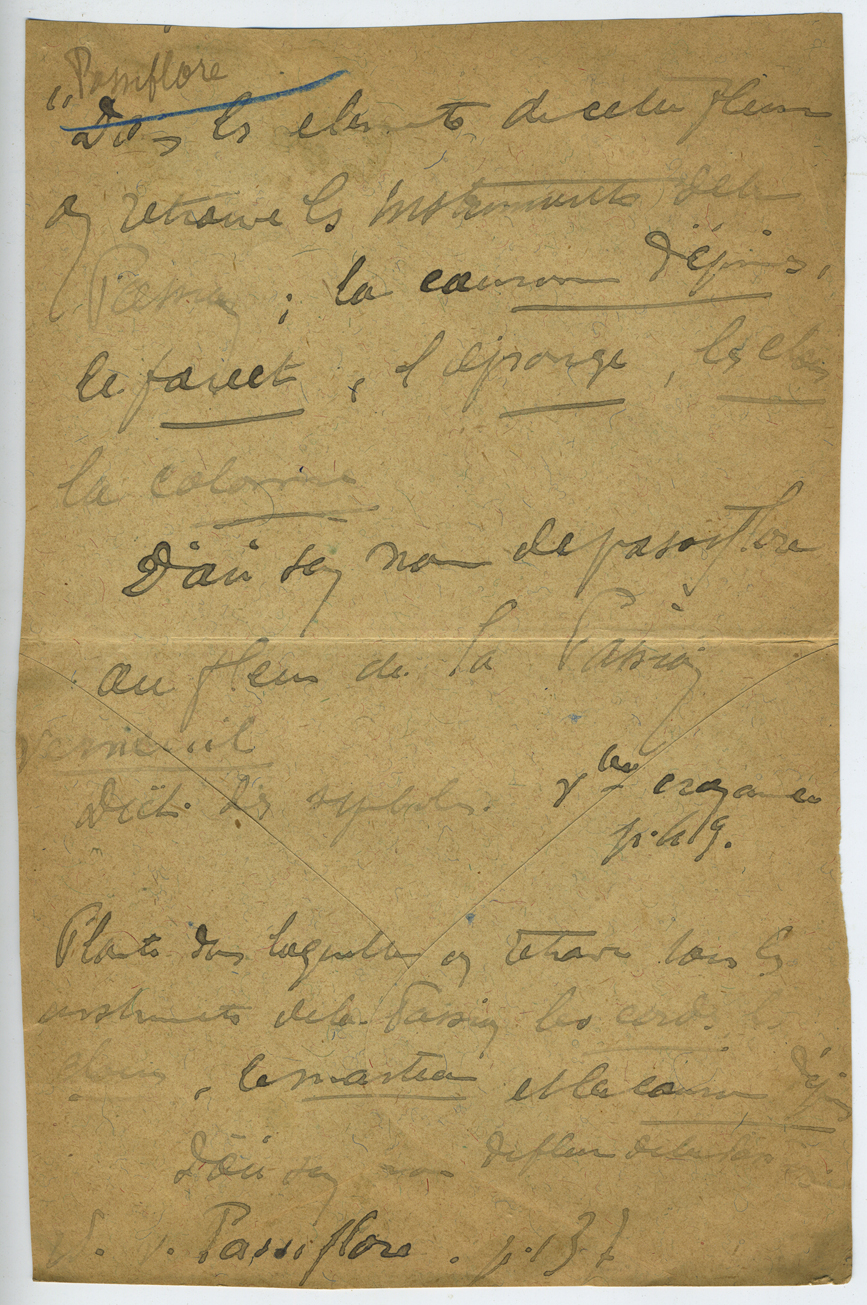 Passiflore
" Dans les elements de cette fleur
on retrouve les instruments de la
Passion ; la couronne d'épines,
le fouet, l'éponge, les clous
la colonne
D'où son nom de passiflore
ou fleur de la Passion
Verneuil
Dict. des symboles.
p. 49.
Plante dans laquelle on retrouve tous les
instruments de la Passion les cordes les
clous, le marteau et la couronne d'épines
D'où son nom de fleur de la Passion
V. Passiflore. p. 137